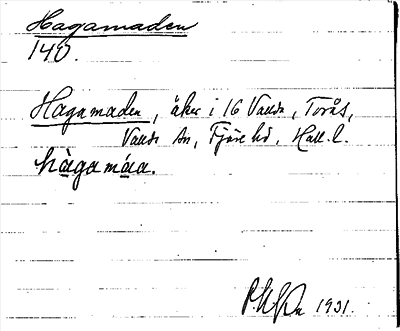 Hagamaden
140.
Hagamaden, åker i 16 Valla, Torås,
Valda sn, Fjäre hd, Hall. l.
hàgamáa.
1931.